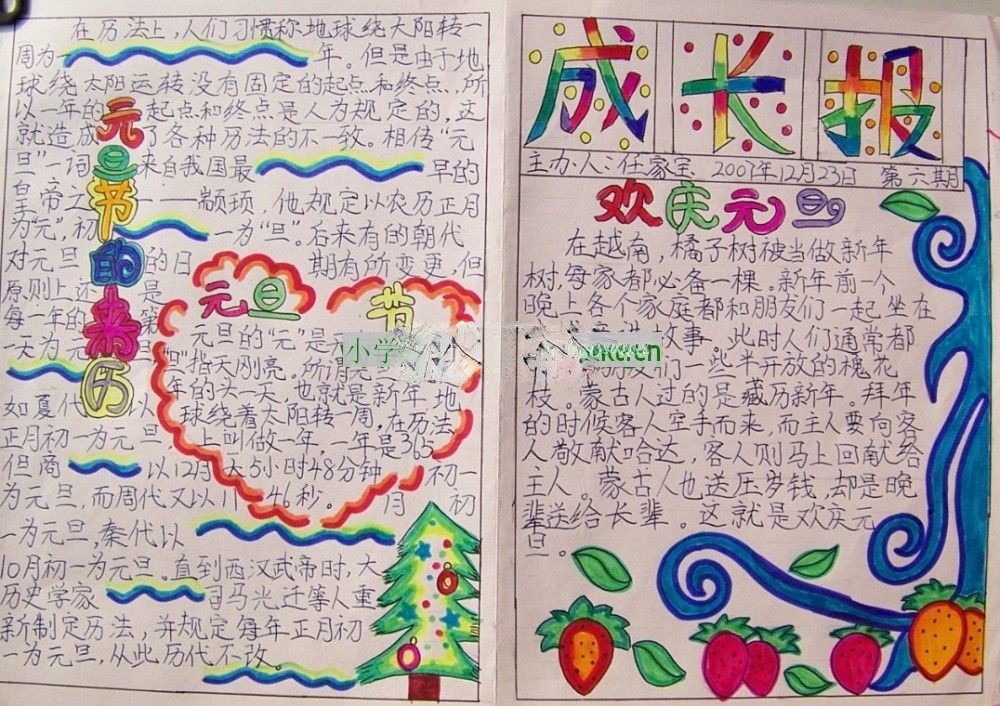 在历法上，人们习惯称地球绕太阳转一
周为一 年。但是由于地
球绕太阳运转没有固定的起点和终点，所
以一年的 起点和终点是人为规定的，这
就造成 了各种历法的不一致。相传“元
旦”一词 来自我国最 早的
皇帝 ——颛顼，他规定以农历正月
为“元”，初 一为“旦”。后来有的朝代
对元旦 的日 期有所变更，但
原则上 是
每一年的 第
一天为元
如夏代 以
正月初一为元旦
但商 以12月 初一
为元旦，而周代又以11 月 初
一为元旦，秦代以
10月初一为元旦。直到西汉武帝时，大
历史学家 司马光迁等人重
新制定历法，并规定每年正月初
一为元旦，从此历代不改。
元旦节的来历
元旦 节
元旦的“元”是
“旦”指天刚亮，所
年的头一天，也就是新年，地
球绕着太阳转一周，在历法
上叫做一年，一年是365
天5小时48分钟
46秒。
小学
成长报
主办人：任家宝 2007年12月23日 第六期
欢庆元旦
在越南，橘子树被当做新年
树，每家都必备一棵。新年前一个
晚上各个家庭都和朋友们一起坐在
故事，此时人们通常都
们一些半开放的槐花
枝。蒙古人过的是藏历新年。拜年
的时候客人空手而来，而主人要向客
人敬献哈达，客人则马上回献给
主人。蒙古人也送压岁钱，却是晚
辈送给长辈。这就是欢庆元
旦。